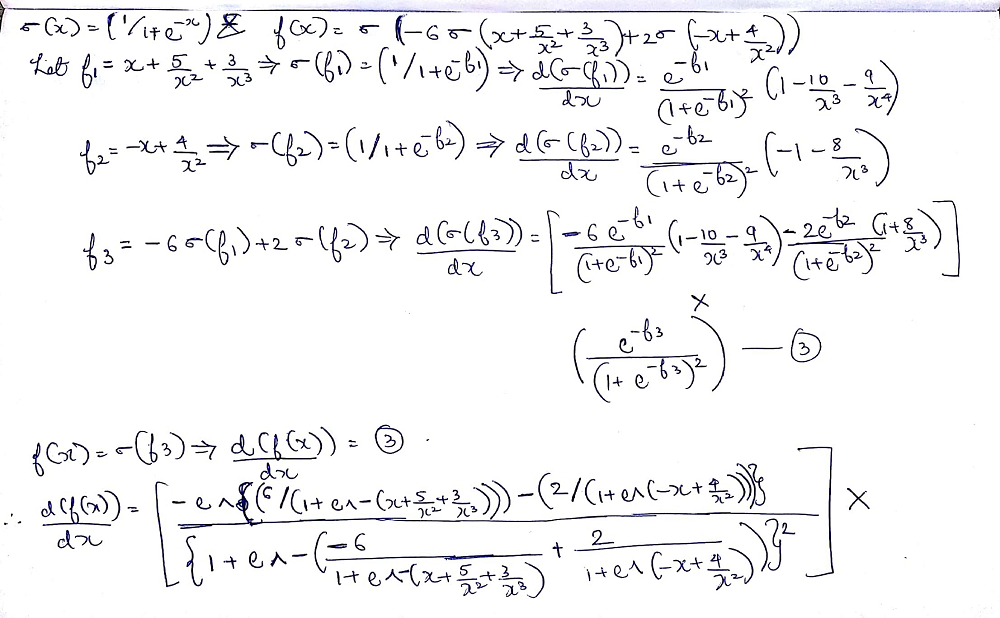 σ(x) = (1/1+e^-x) & f(x) = σ(-6σ(x+5/x²+3/x³)+2σ(-x+4/x²))
Let f₁ = x+5/x²+3/x³ ⇒ σ(f₁) = (1/1+e^-f₁) ⇒ d(σ(f₁))/dx = e^-f₁/(1+e^-f₁)² (1-10/x³-9/x⁴)
f₂ = -x+4/x² ⇒ σ(f₂) = (1/1+e^-f₂) ⇒ d(σ(f₂))/dx = e^-f₂/(1+e^-f₂)² (-1-8/x³)
f₃ = -6σ(f₁)+2σ(f₂) ⇒ d(σ(f₃))/dx = [-6e^-f₁/(1+e^-f₁)² (1-10/x³-9/x⁴) - 2e^-f₂/(1+e^-f₂)² (1+8/x³)]
×
(e^-f₃/(1+e^-f₃)²) — ③
f(x) = σ(f₃) ⇒ d(f(x))/dx = ③.
∴ d(f(x))/dx = [-e^{(6/(1+e^-(x+5/x²+3/x³)))-(2/(1+e^(-x+4/x²)))}/{1+e^-(-6/1+e^-(x+5/x²+3/x³) + 2/1+e^(-x+4/x²))}²] ×